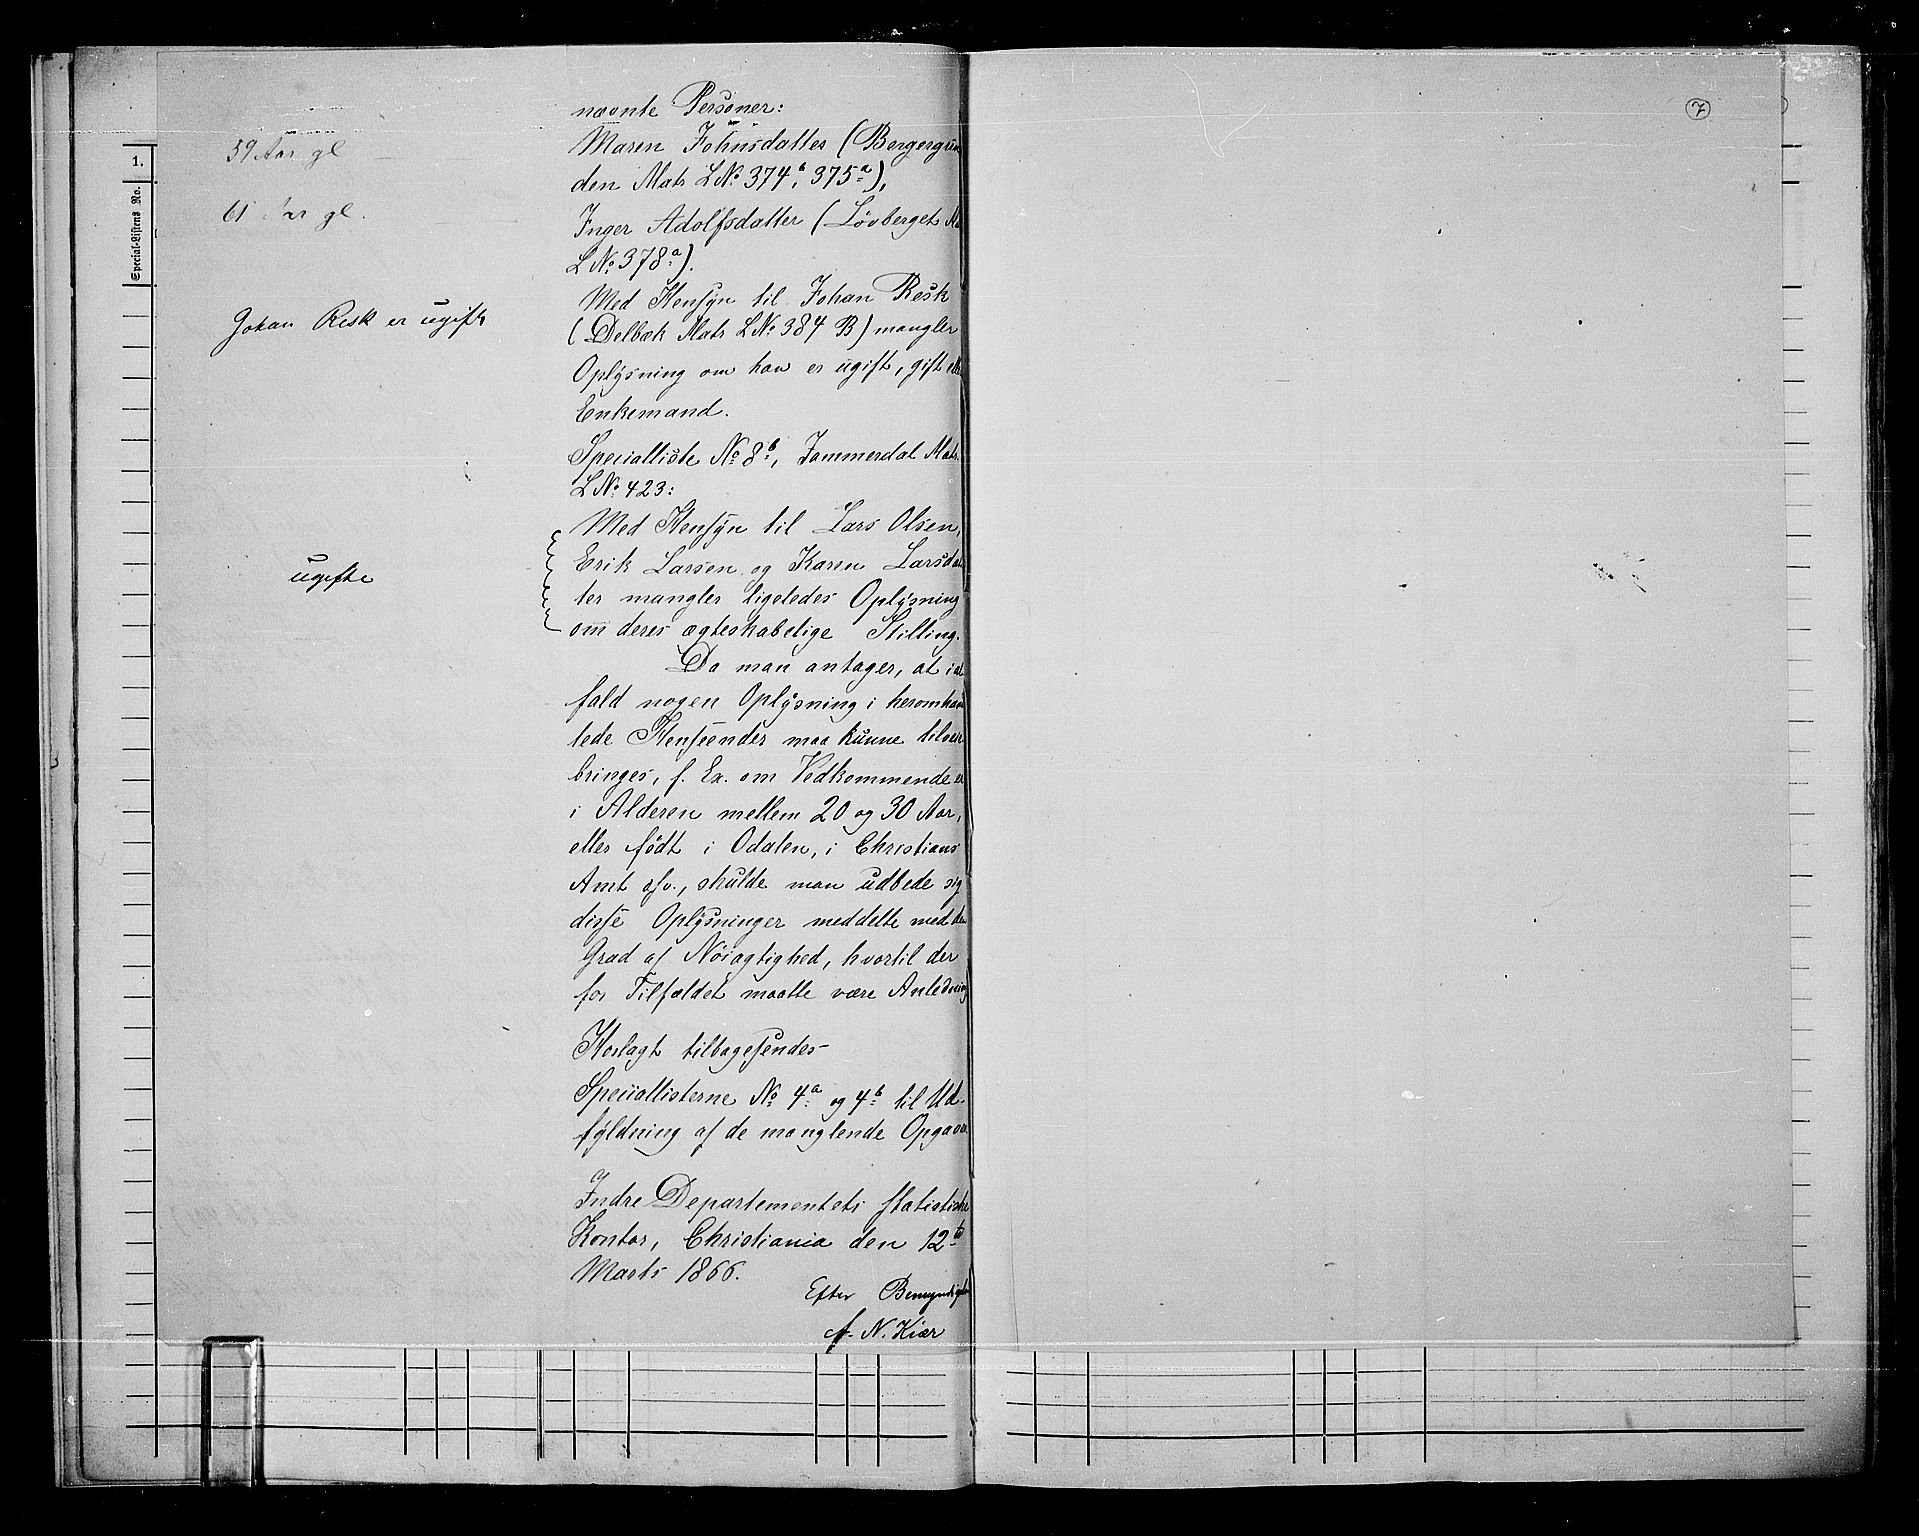 7
1.
Special-Listens No.
nævnte Personer:
59 Aar gl
Maren Johnsdatter (Bergergrin
den Mats LNo 374b, 375a),
61 Aar gl.
Inger Adolfsdatter (Løvberget
LNo 378a).
Med Hensyn til Johan Resk
Johan Resk er ugift
(Delbæk Mats LNo 384 B) mangler
Oplysning om han er ugift, gift ell
Enkemand.
Specialliste No 8b, Jammerdal Mats.
LNo 423:
Med Hensyn til Lars Olsen,
Erik Larsen og Karen Larsdat
ugifte
ter mangler ligeledes Oplysning
om deres ægteskabelige Stilling.
Da man antager, at i al
fald nogen Oplysning i heromhand
lede Henseender maa kunne tilveie
bringes, f. Ex. om Vedkommende er
i Alderen mellem 20 og 30 Aar,
eller født i Odalen, i Christians
Amt osv., skulde man udbede sig
disse Oplysninger meddelte med den
Grad af Nøiagtighed, hvortil der
for Tilfældet maatte være Anledning
Hoslagt tilbagesendes
Speciallisterne No 4a og 4b til Ud-
fyldning af de manglende Opgaver.
Indre Departementets statistiske
Kontor, Christiania den 12te
Marts 1866.
Efter Bemyndigelse
A. N. Kiær